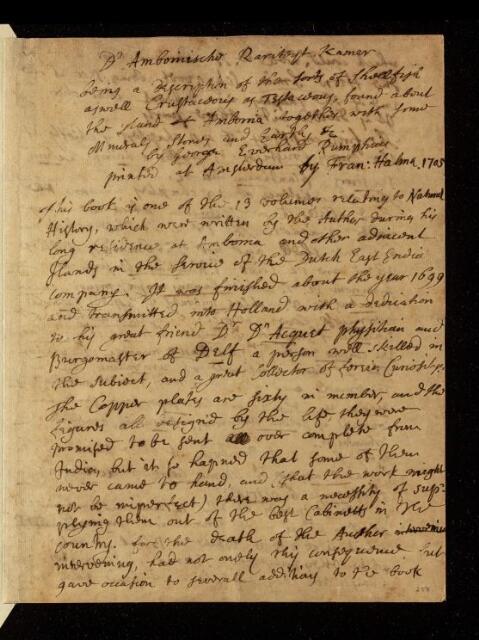 D' Amboinische Rariteyt Kamer
being a Description of the sorts of Shellfish
aswell Crustaceous as Testaceous, found about
the Island of Amboina together with some
Mineralls Stones and Earths &c
by George Everhard Rumphius
printed at Amsterdam by Fran: Halma. 1705
This book is one of the 13 volumes relating to Natural
History, which were written by the Author during his
long residence at Amboina and other adjacent
Islands in the service of the Dutch East India
company. It was finished about the year 1699
and transmitted into Holland with a dedication
to his great friend Dr D'Acquet physitian and
Burgomaster of Delf a person well skilled in
the subject, and a great Collector of foreign Curiositys.
The Copper plates are sixty in number, and the
figures all designed by the life they were
promised to be sent all over complete from
India, but it so hapned that some of them
never came to hand, and (that the work might
not be imperfect) there was a necessity of sup-
plying them out of the best Cabinetts in the
Country. for the death of the Author
intervening, had not onely this consequence but
gave occasion to severall additions to the book